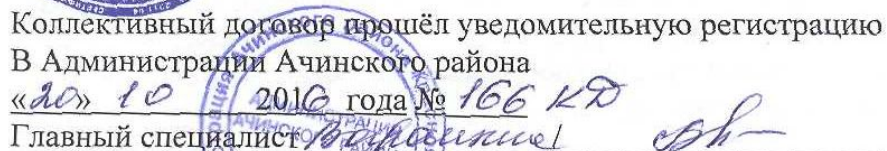 Коллективный договор прошёл уведомительную регистрацию
В Администрации Ачинского района
«20» 10 2016 года № 166 КД
Главный специалист